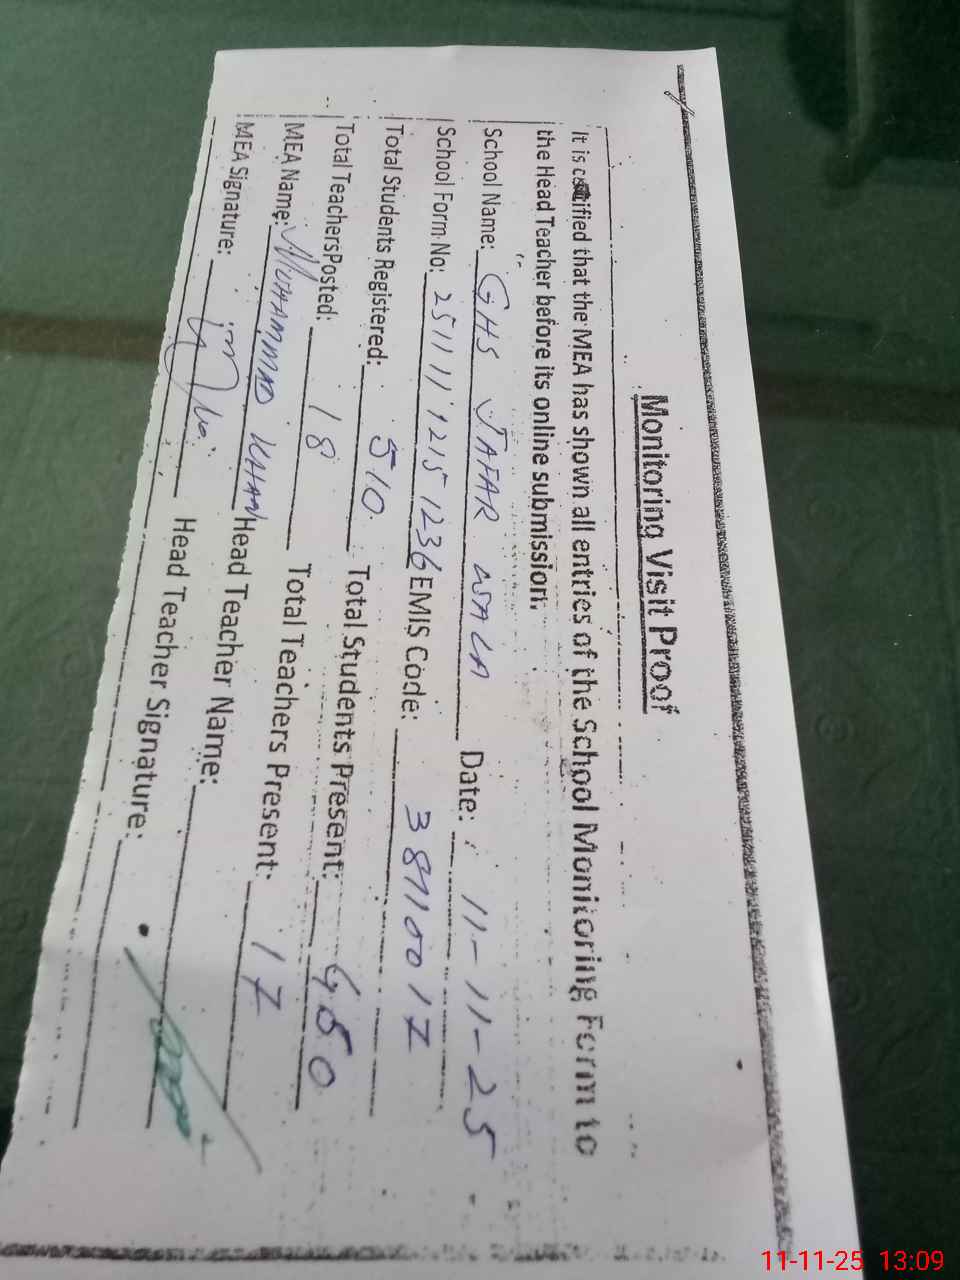 Monitoring Visit Proof
It is certified that the MEA has shown all entries of the School Monitoring Form to
the Head Teacher before its online submission.
School Name: GHS JAFAR WALA Date: 11-11-25
School Form No: 25111112151236 EMIS Code: 38110017
Total Students Registered: 510 Total Students Present: 480
Total Teachers Posted: 18 Total Teachers Present: 17
MEA Name: MUHAMMAD KHAN Head Teacher Name:
MEA Signature: Head Teacher Signature:
11-11-25 13:09